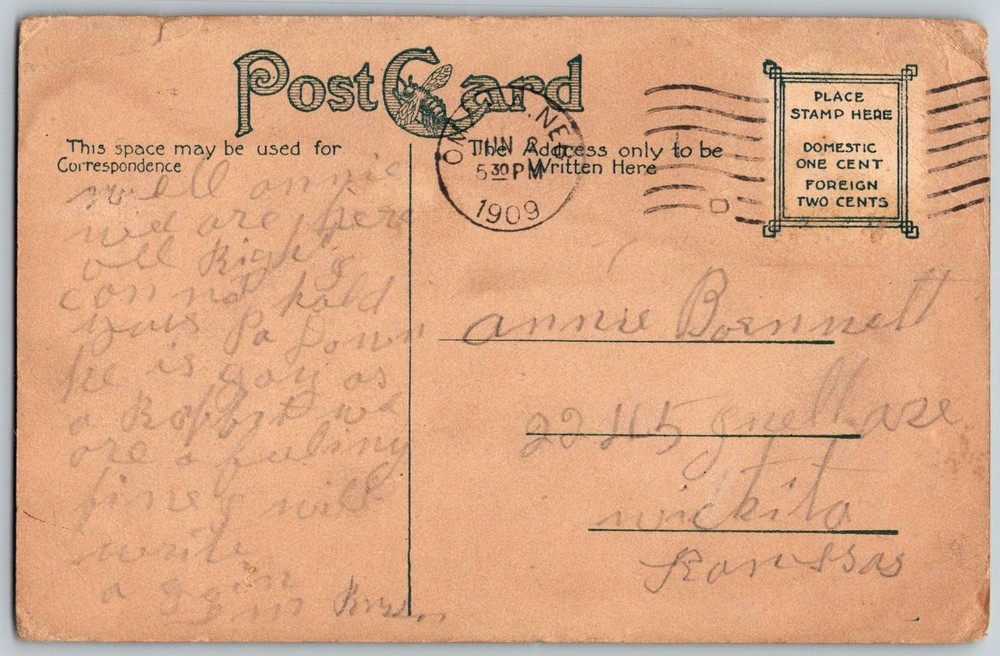 Post Card
This space may be used for
Correspondence
The Address only to be
Written Here
JUN
5 30 PM
1909
PLACE
STAMP HERE
DOMESTIC
ONE CENT
FOREIGN
TWO CENTS
well annie
we are here
all Right
con not hold
your Pa Down
he is gay as
a Rabbit we
are a feeling
fine will
write
a gain
annie
2245
wickita
Kanssas